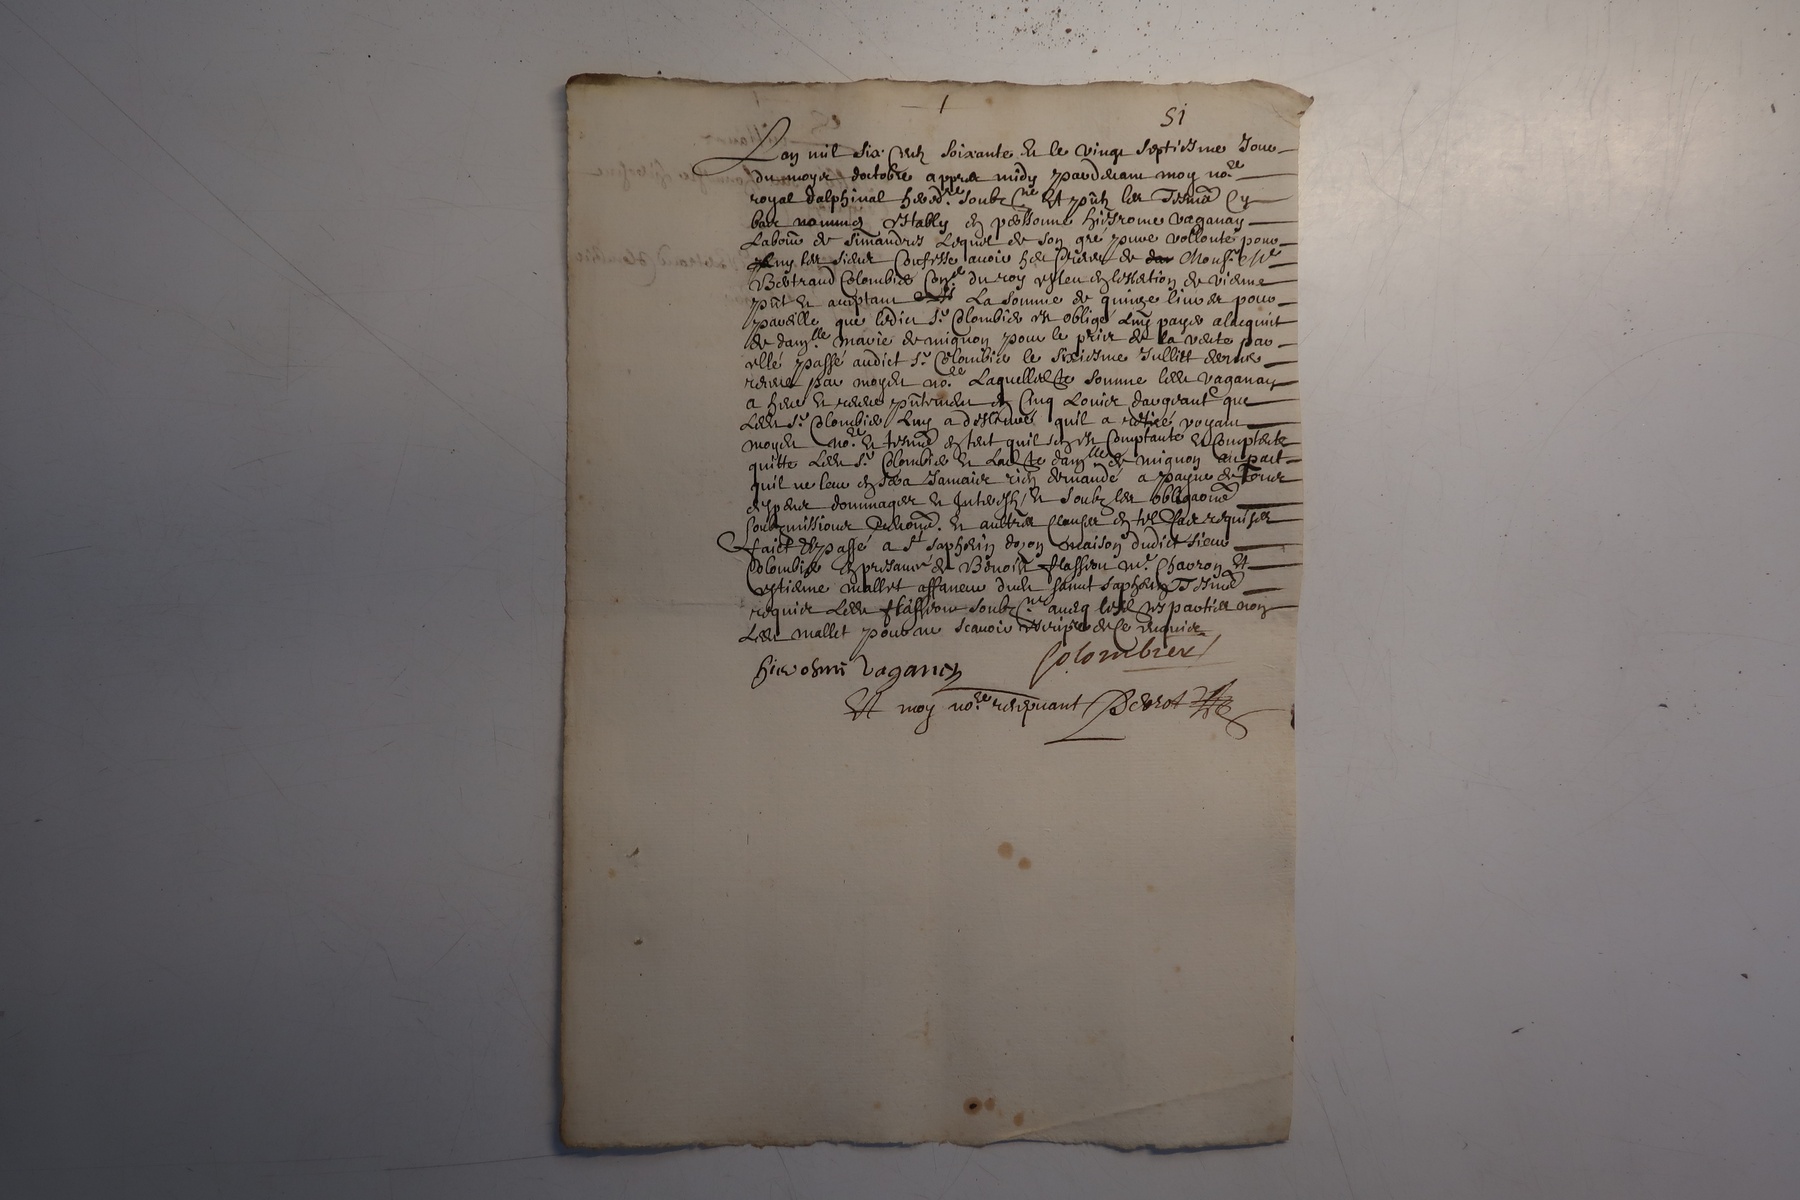 51
Lan mil six centz soixante et le vingt septiesme Jour
du moys doctobre appres midy pardevant moy no.re
royal dalphinal hered.re soubz.né et pntz les tesmo. cy
bas nommez estably en personne hierosme vaganay
Labour. de simandres Lequel de son gré pure vollonté pour
luy les siens Confesse avoir heu Receu de Monsr Me
Bertrand Colombier Con.er du roy esleu en leslection de vienne
pnt et acceptant La somme de quinze livres pour
pareille que ledict Sr Colombier est obligé luy payer a lacquit
de dam.lle marie de mignon pour le prix de la vente par
elle passé audict Sr Colombier le sixiesme Julliet dernier
receue par moydit no.re Laquelle somme ledit vaganay
a heu et receu pntement en Cinq Louis dargent que
Ledit Sr Colombier Luy a deslivré quil a retiré voyant
moydit no.re et tesmo. en tant quil sen est Comptanté et Comptente
quitte Ledit Sr Colombier et Ladite dam.lle de mignon avec pact
quil ne leur en sera Jamais rien demandé a payne de tous
despens dommages et Interestz et soubz les obligaons
soubzmissions renon. et autres clauses en tel faict requises
faict et passé a St saphorin dozon maison dudict sieur
Colombier en presance de Benoist flassieu M.e Charon et
estienne mallet affaneur dudit sainct saphorin tesmo.
requis Ledit flassieu soubz.né avecq lesdites parties non
Ledit mallet pour ne scavoir escripre de ce requis
hierosme vaganey Colombier
Et moy no.re recepvant Perrot